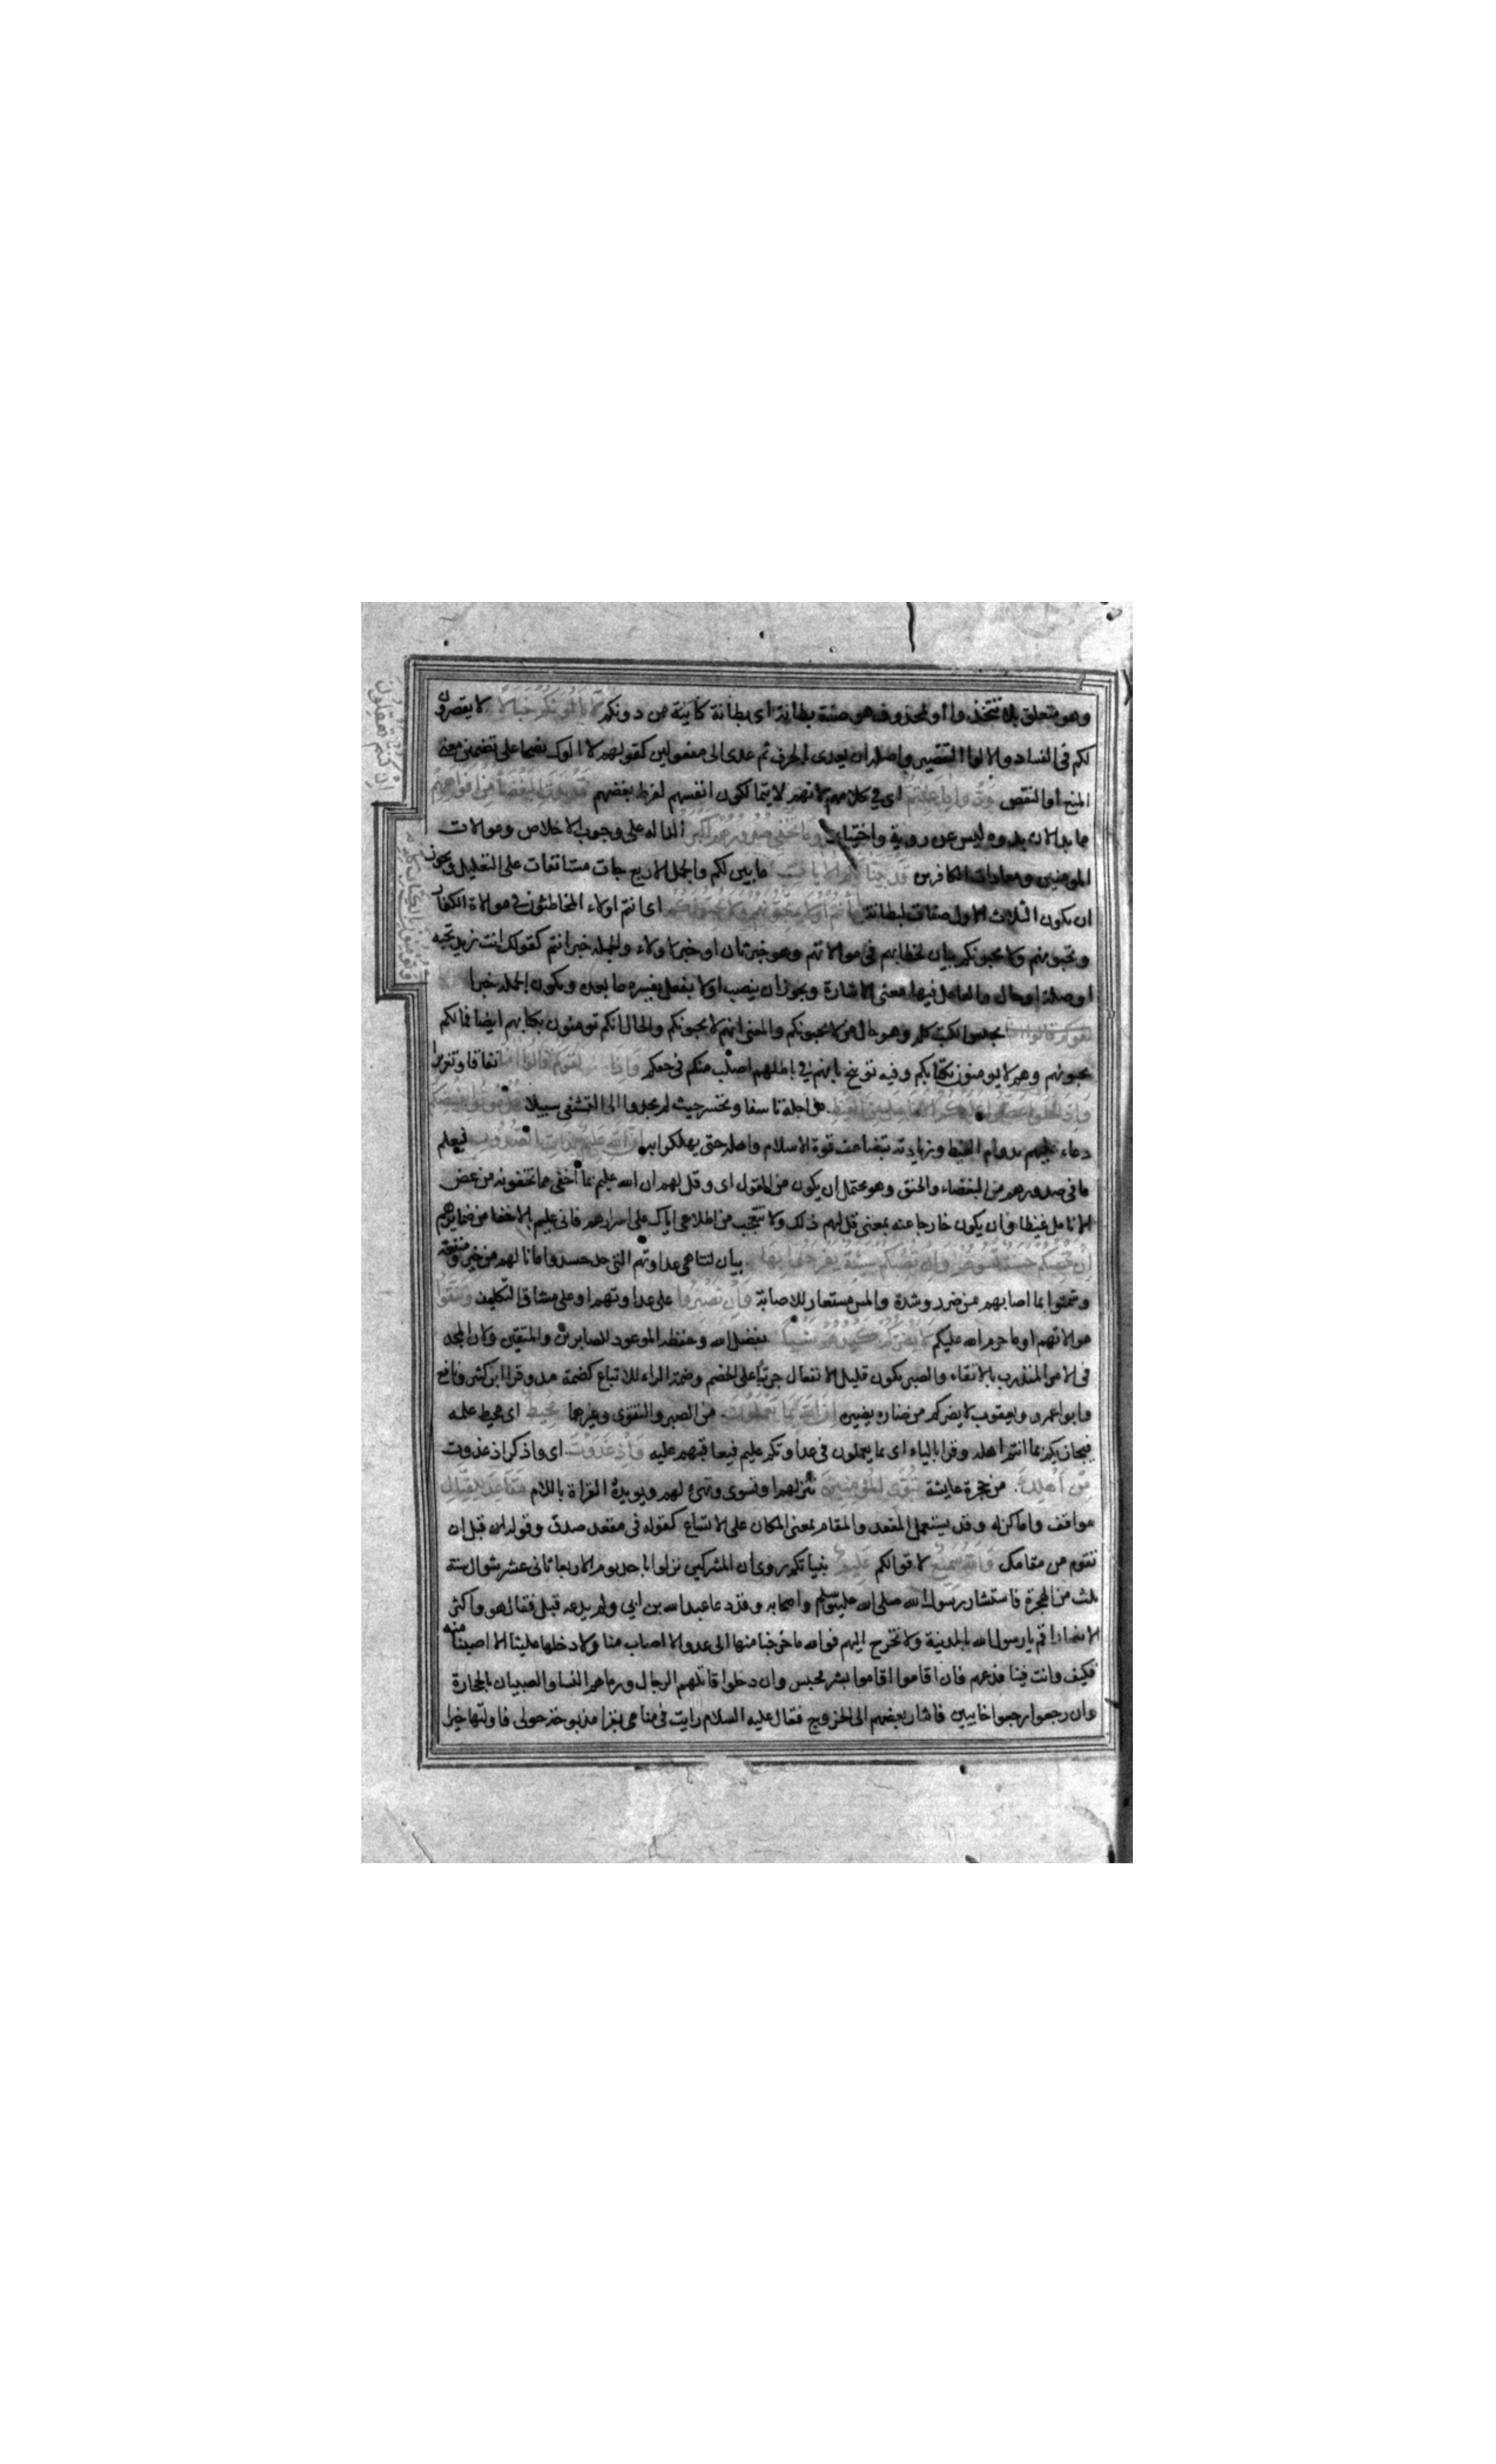 وهو متعلق بلا تتخذوا او بمحذوف هو صفة بطانة اى بطانة كاينة من دونكم لا يالونكم خبالا لا يقصرون
لكم فى الفساد والالوا التقصير واصله ان يعدى بالحرف ثم عدى الى مفعولين كقولهم لا الوك نصحا على تضمين معنى
المنع او النقص ودوا ما عنتم قد بدت البغضا من افواههم اى فى كلامهم لانهم لا يتمالكون انفسهم لفرط بغضهم
مما بدا لان بدوه ليس عن روية واختيار وما تخفى صدورهم اكبر الداله على وجوب الاخلاص وموالات
المومنين ومعادات الكافرين قد بينا لكم الايات ما بين لكم والجمل الاربع جات مستانفات على التعليل ويجوز
ان يكون الثلاث الاول صفات لبطانة ها أنتم أولاء تحبونهم ولا يحبونكم اى انتم اولاء الخاطئون فى موالاة الكفار
وتحبونهم ولا يحبونكم بيان لخطابهم فى موالاتهم وهو خبر ثان او خبر لاولاء والجملة خبر انتم كقولك انت زيد تحبه
او صلته او حال والعامل فيها معنى الاشارة ويجوز ان ينصب اولا بفعل يفسره ما بعده ويكون الجملة خبرا
بجنس الكتب كله وهو حال من لا يحبونكم والمعنى انهم لا يحبونكم والحال انكم تومنون بكتابهم ايضا فما بالكم
تحبونهم وهم لا يومنون بكتابكم وفيه توبيخ بانهم فى باطلهم اصلب منكم فى حقكم واذا لقوكم قالوا امنا نفاقا وتغريرا
واذا خلوا عضوا عليكم الانامل من الغيظ من اجله تاسفا وتحسرا حيث لم يجدوا الى التشفى سبيلا قل موتوا بغيظكم
دعاء عليهم بدوام الغيظ وزيادته بتضاعف قوة الاسلام واهله حتى يهلكوا به ان الله عليم بذات الصدور فيعلم
ما فى صدورهم من البغضاء والحنق وهو يحتمل ان يكون من المقول اى وقل لهم ان الله عليم بما أخفى مما تخفونه من عض
الانامل غيظا وان يكون خارجا عنه بمعنى قل لهم ذلك ولا تتعجب من اطلاعى اياك على اسرارهم فانى عليم بالاخفا من ضمايرهم
إن تمسسكم حسنة تسؤهم وإن تصبكم سيئة يفرحوا بها بيان لتناهى عداوتهم الى حد حسدوا ما نالهم من خير ومنفعة
وشمتوا بما اصابهم من ضرر وشدة والمس مستعار للاصابة وان تصبروا على عداوتهم او على مشاق التكليف وتتقوا
موالاتهم او ما حرم الله عليكم لا يضركم كيدهم شيئا بفضل الله وحفظه الموعود للصابرين والمتقين ولان المجد
فى الامر المتدرب بالاتقاء والصبر يكون قليل الانفعال جرئا على الخصم وضمة الراء للاتباع كضمة مد وقرا ابن كثير ونافع
وابو عمرو ويعقوب لا يضركم من ضاره يضيره ان الله بما يعملون من الصبر والتقوى وغيرهما محيط اى محيط علمه
فيجازيكم بما انتم اهله وقرا بالياء اى بما يعملون فى عداوتكم عليم فيعاقبهم عليه وإذ غدوت اى واذكر اذ غدوت
من أهلك من حجرة عايشة تبوئ المؤمنين تنزلهم او تسوى وتهيئ لهم ويويده القراة باللام مقاعد للقتال
مواقف واماكن له وقد يستعمل المقعد والمقام بمعنى المكان على الاتساع كقوله فى مقعد صدق وقوله قبل ان
تقوم من مقامك والله سميع لاقوالكم عليم بنياتكم روى ان المشركين نزلوا باحد يوم الاربعا ثانى عشر شوال سنة
ثلث من الهجرة فاستشار رسول الله صلى الله عليه وسلم واصحابه وقد دعا عبد الله بن ابي ولم يدعه قبل فقال هو واكثر
الانصار اقم يا رسول الله بالمدينة ولا تخرج اليهم فوالله ما خرجنا منها الى عدو الا اصاب منا ولا دخلها علينا الا اصبنا منه
فكيف وانت فينا فدعهم فان اقاموا اقاموا بشر محبس وان دخلوا قاتلهم الرجال ورماهم النسا والصبيان بالحجارة
وان رجعوا رجعوا خايبين فاشار بعضهم الى الخروج فقال عليه السلام رايت فى منامى بقرا مذبوحة حولى فاولتها خيرا
ان كنتم تعقلون